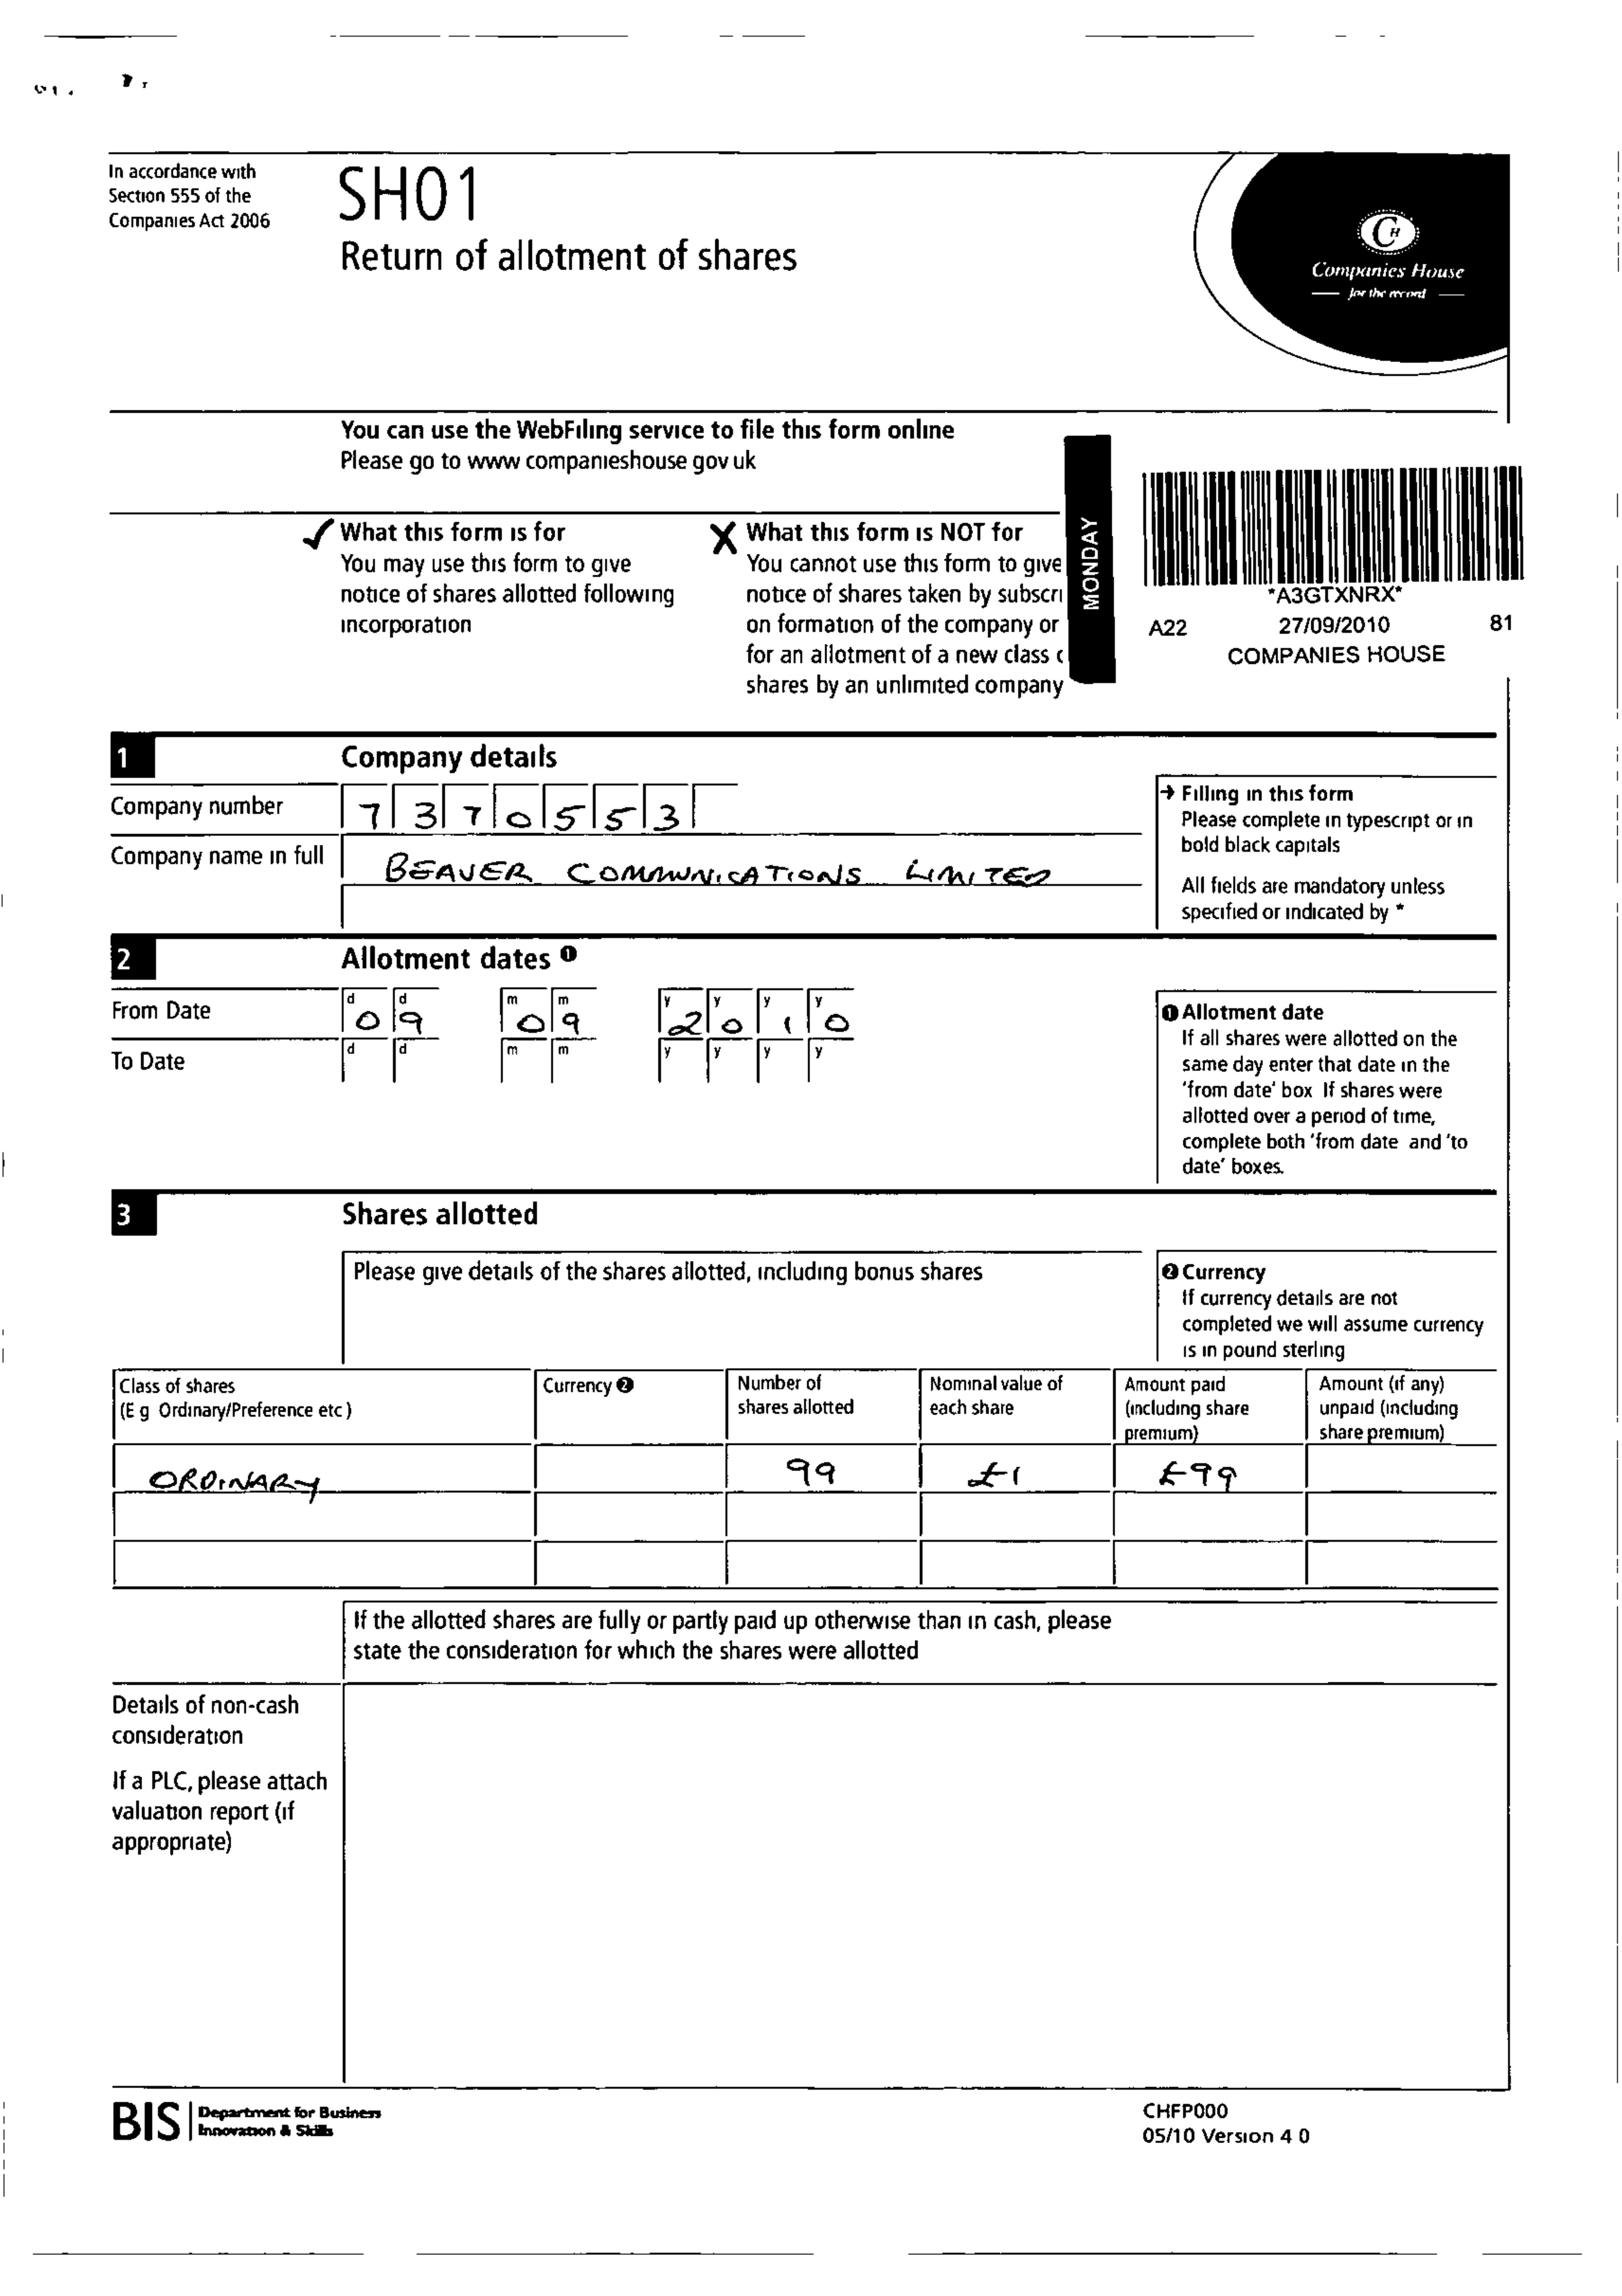 In accordance with
Section 555 of the
Companies Act 2006
SH01
Return of allotment of shares
CH
Companies House
for the record
You can use the WebFiling service to file this form online
Please go to www companieshouse gov uk
✓ What this form is for
You may use this form to give
notice of shares allotted following
incorporation
X What this form is NOT for
You cannot use this form to give
notice of shares taken by subscri
on formation of the company or
for an allotment of a new class
shares by an unlimited company
MONDAY
*A3GTXNRX*
A22 27/09/2010 81
COMPANIES HOUSE
1 Company details
Company number 7 3 7 0 5 5 3
Company name in full BEAVER COMMUNICATIONS LIMITED
→ Filling in this form
Please complete in typescript or in
bold black capitals
All fields are mandatory unless
specified or indicated by *
2 Allotment dates ❶
From Date d 0 d 9 m 0 m 9 y 2 y 0 y 1 y 0
To Date d d m m y y y y
❶ Allotment date
If all shares were allotted on the
same day enter that date in the
'from date' box If shares were
allotted over a period of time,
complete both 'from date and 'to
date' boxes.
3 Shares allotted
Please give details of the shares allotted, including bonus shares
❷ Currency
If currency details are not
completed we will assume currency
is in pound sterling
Class of shares
(E g Ordinary/Preference etc)
Currency ❷
Number of
shares allotted
Nominal value of
each share
Amount paid
(including share
premium)
Amount (if any)
unpaid (including
share premium)
ORDINARY 99 £1 £99
If the allotted shares are fully or partly paid up otherwise than in cash, please
state the consideration for which the shares were allotted
Details of non-cash
consideration
If a PLC, please attach
valuation report (if
appropriate)
BIS Department for Business
Innovation & Skills
CHFP000
05/10 Version 4 0